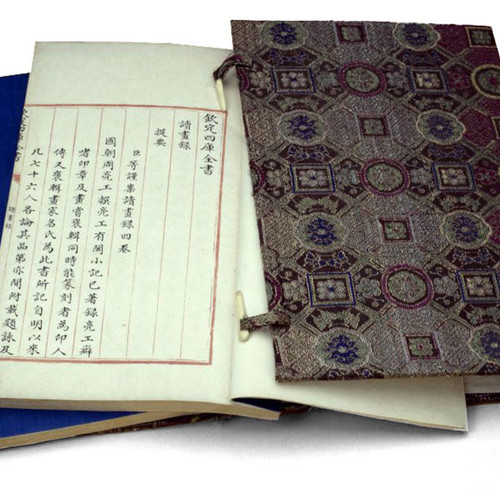 欽定四庫全書
讀畫錄
提要
臣等謹案讀畫錄四卷
國朝周亮工撰亮工有閩小記已著錄亮工癖
嗜印章及畫嘗裒輯同時能篆刻者為印人
傳又裒輯畫家名氏為此書所記自明以來
凡七十六人各論其品第亦間附載題詠及